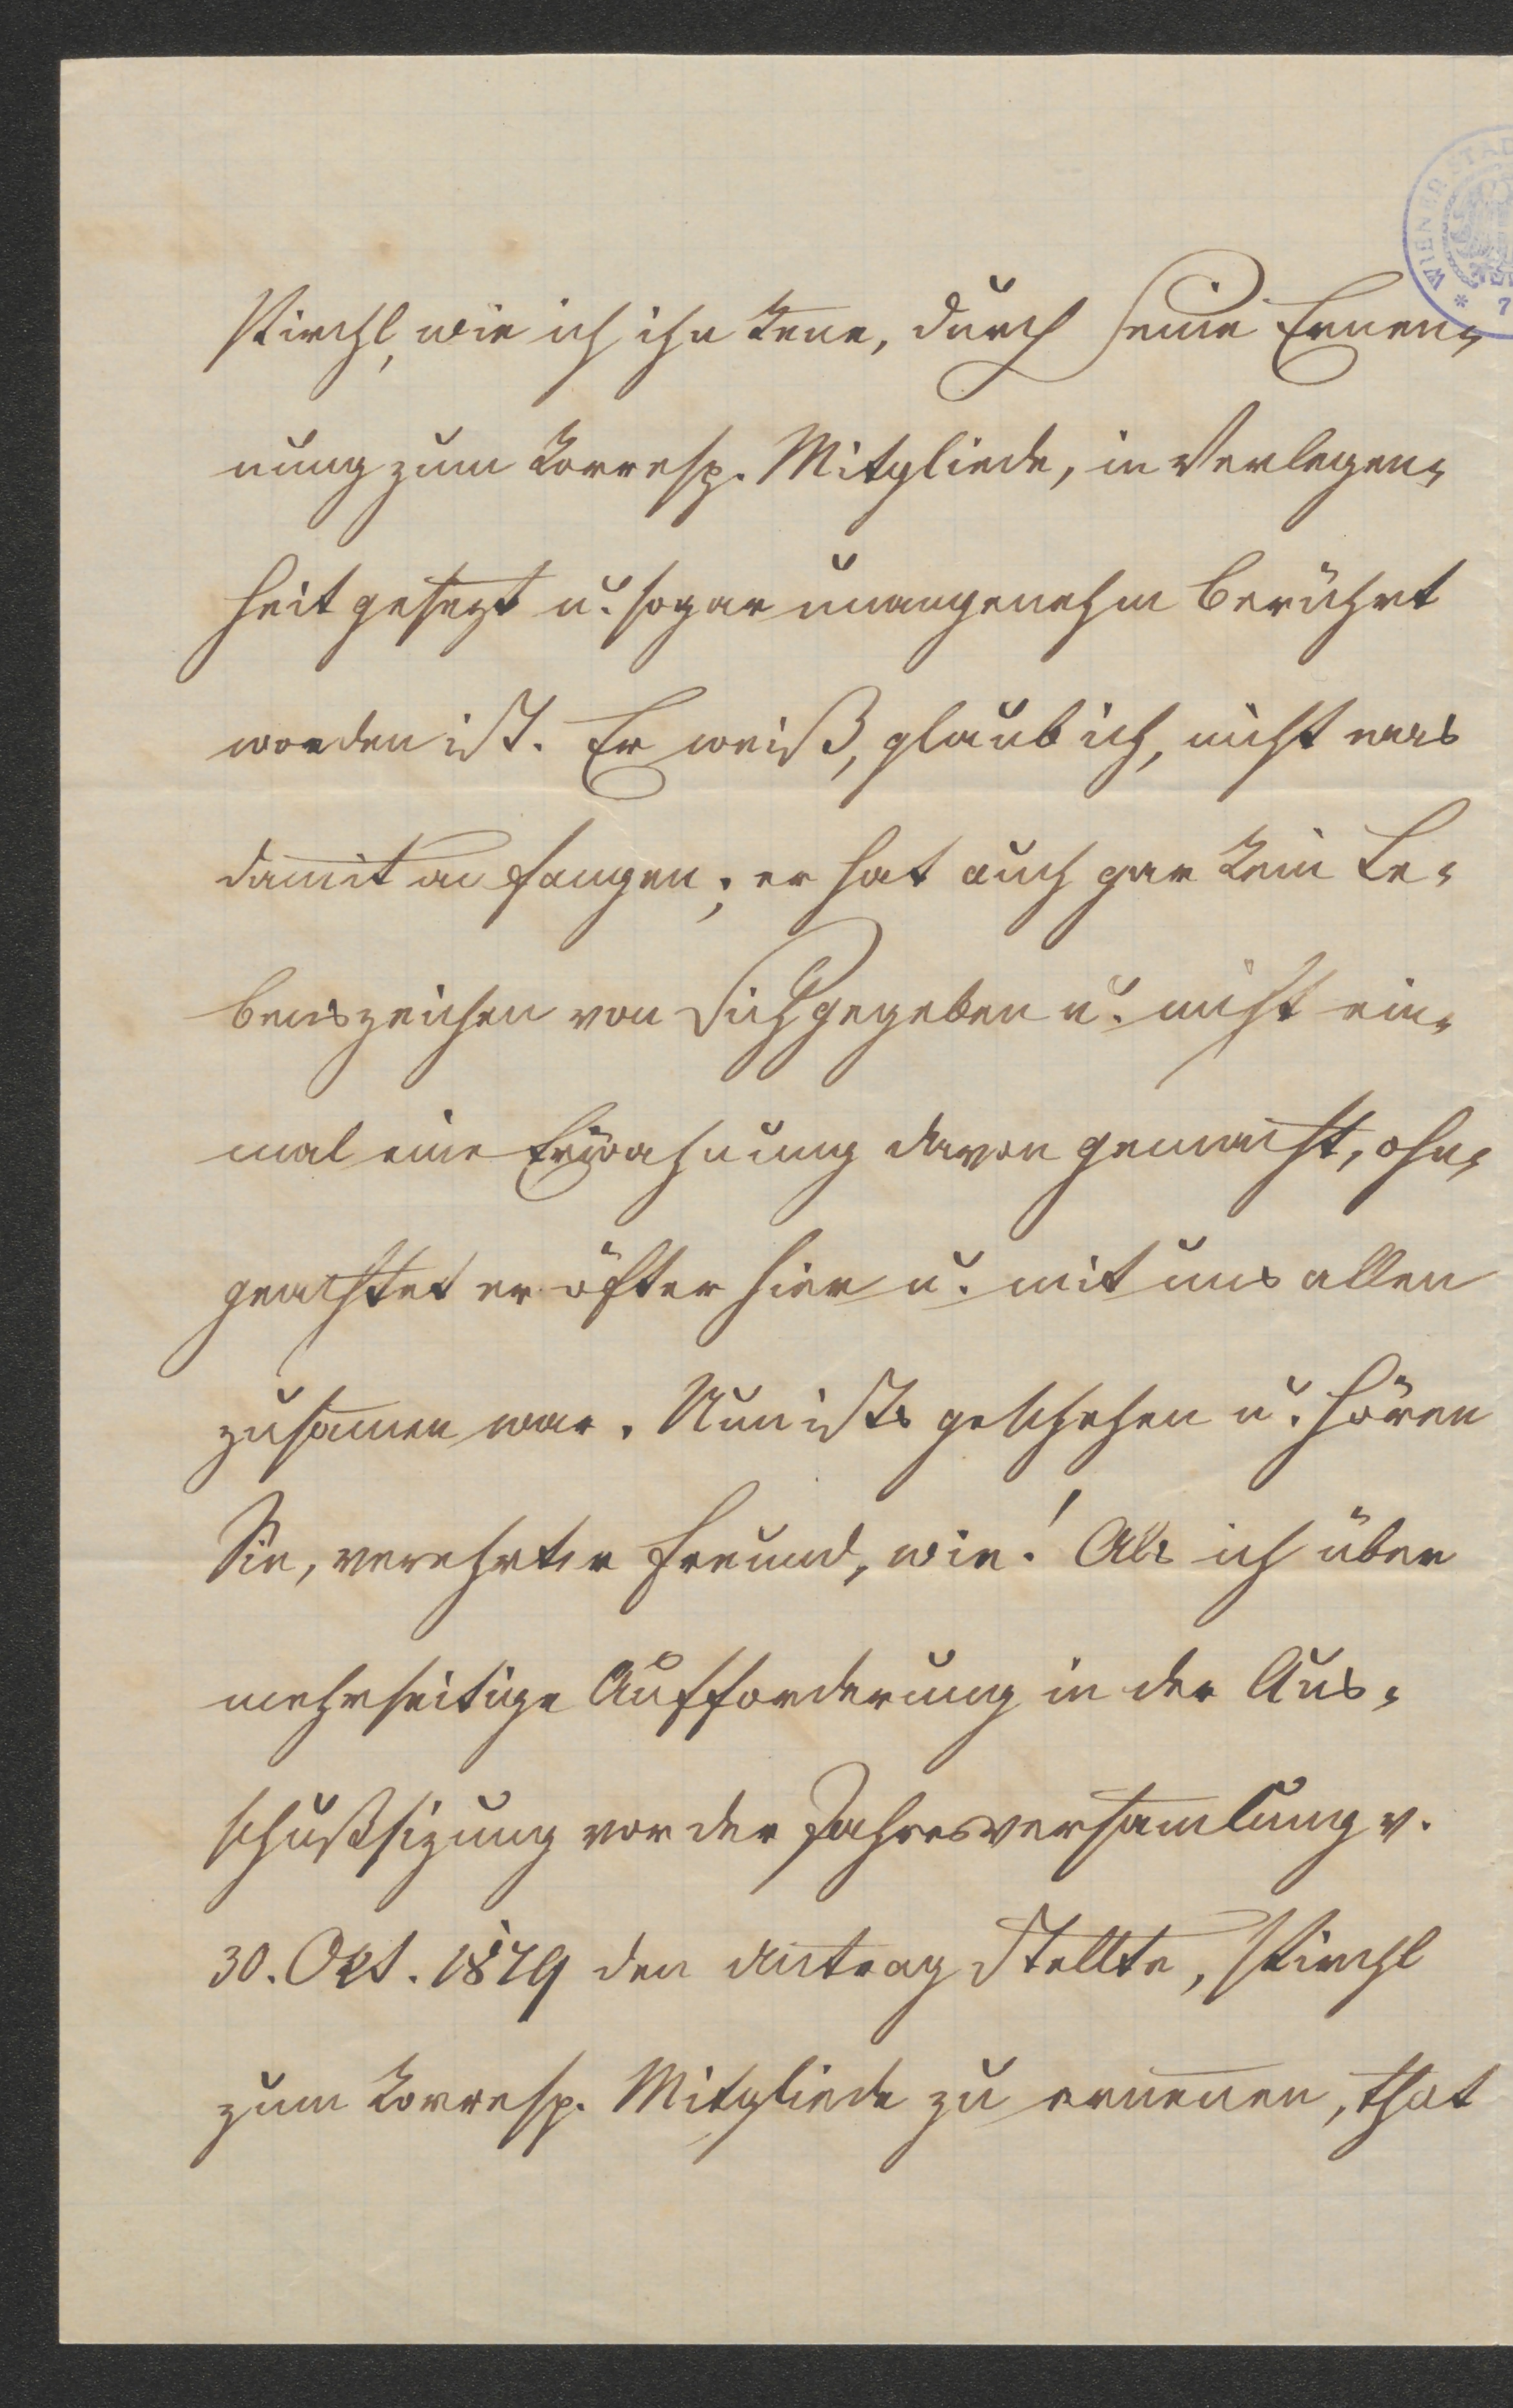 Pirchl, wie ich ihn keñe, durch seine Ernen-
nung zum korresp. Mitgliede, in Verlegen-
heit gesezt u. sogar unangenehm berührt
worden ist. Er weiß, glaub ich, nicht was
damit anfangen; er hat auch gar kein Le-
benszeichen von Sich gegeben u. nicht ein-
mal eine Erwähnung davon gemacht, ohn-
geachtet er öfter hier u. mit uns allen
zusam̄en war. Nun ists geschehen u. hören
Sie, verehrter Freund, wie! Als ich über
mehrseitige Aufforderung in der Aus-
schußsizung vor der Jahresversam̄lung v.
30. Okt. 1879 den Antrag stellte, Pirchl
zum korresp. Mitgliede zu ernen̄en, that
WIENER STAD
* 7